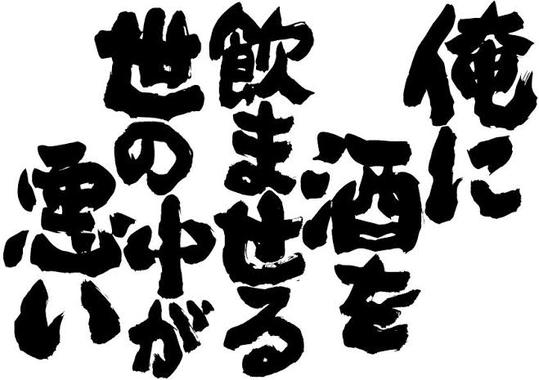 俺に
酒を
飲ませる
世の中が
悪い